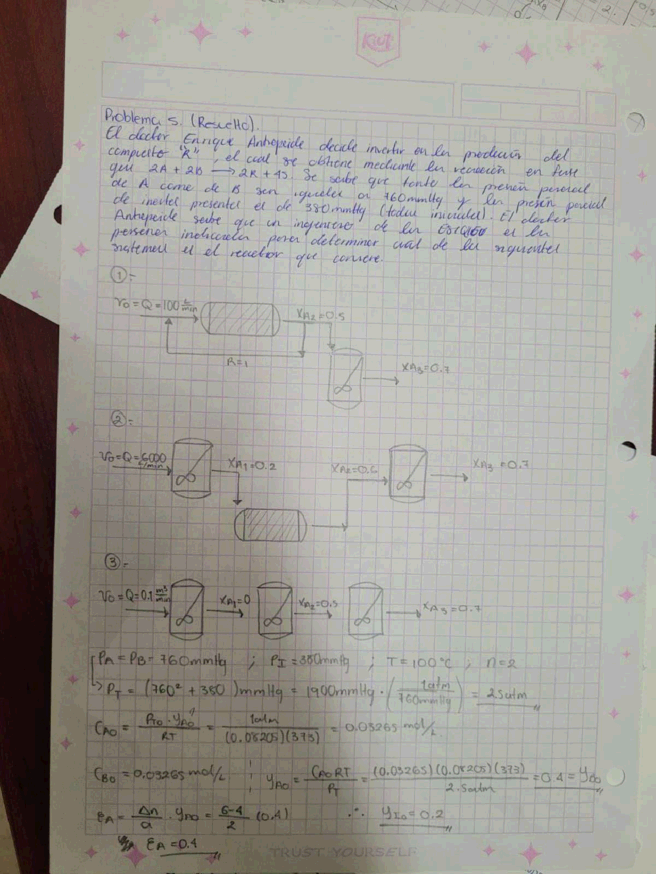 KIUT
Problema 5. (Resuelto).
El doctor Enrique Antrepeide decide invertir en la producción del
compuesto "R", el cual se obtiene mediante la reacción en fase
gas 2A + 2B → 2R + 4S. Se sabe que tanto la presión parcial
de A como de B son iguales a 760mmHg y la presión parcial
de inertes presentes es de 380mmHg (todas iniciales). El doctor
Antrepeide sabe que un ingeniero de la ESIQIE es la
persona indicada para determinar cual de los siguientes
sistemas es el reactor que conviene
①:-
Vo=Q=100 L/min
XA2=0.5
R=1
XA3=0.7
②:-
Vo=Q=6000 L/min
XA1=0.2
XA2=0.6
XA3=0.7
③:-
Vo=Q=0.1 m³/min
XA1=0
XA2=0.5
XA3=0.7
PA=PB=760mmHg ; PI=380mmHg ; T=100°C ; n=2
PT=(760²+380)mmHg=1900mmHg·(1atm/760mmHg)=2.5atm
CA0=PT0·yA0/RT=1atm/(0.08205)(373)=0.03265 mol/L
CB0=0.03265mol/L yA0=CA0RT/PT=(0.03265)(0.08205)(373)/2.5atm=0.4=yB0
εA=Δn/a·yA0=6-4/2 (0.4) ∴ yI0=0.2
εA=0.4
TRUST YOURSELF